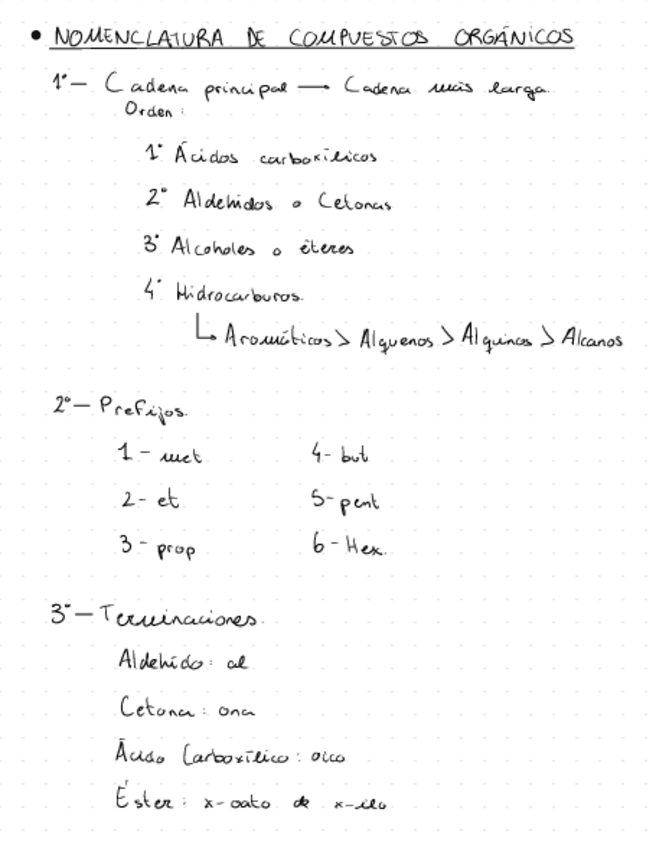 • NOMENCLATURA DE COMPUESTOS ORGÁNICOS
1º— Cadena principal → Cadena más larga.
Orden:
1º Ácidos carboxílicos
2º Aldehidos o Cetonas
3º Alcoholes o éteres
4º Hidrocarburos.
↳ Aromáticos > Alquenos > Alquinos > Alcanos
2º— Prefijos.
1 - met 4- but
2- et 5- pent
3 - prop 6 - Hex.
3º— Terminaciones.
Aldehído: al
Cetona: ona
Ácido Carboxílico: oico
Éster: x-oato de x-ilo